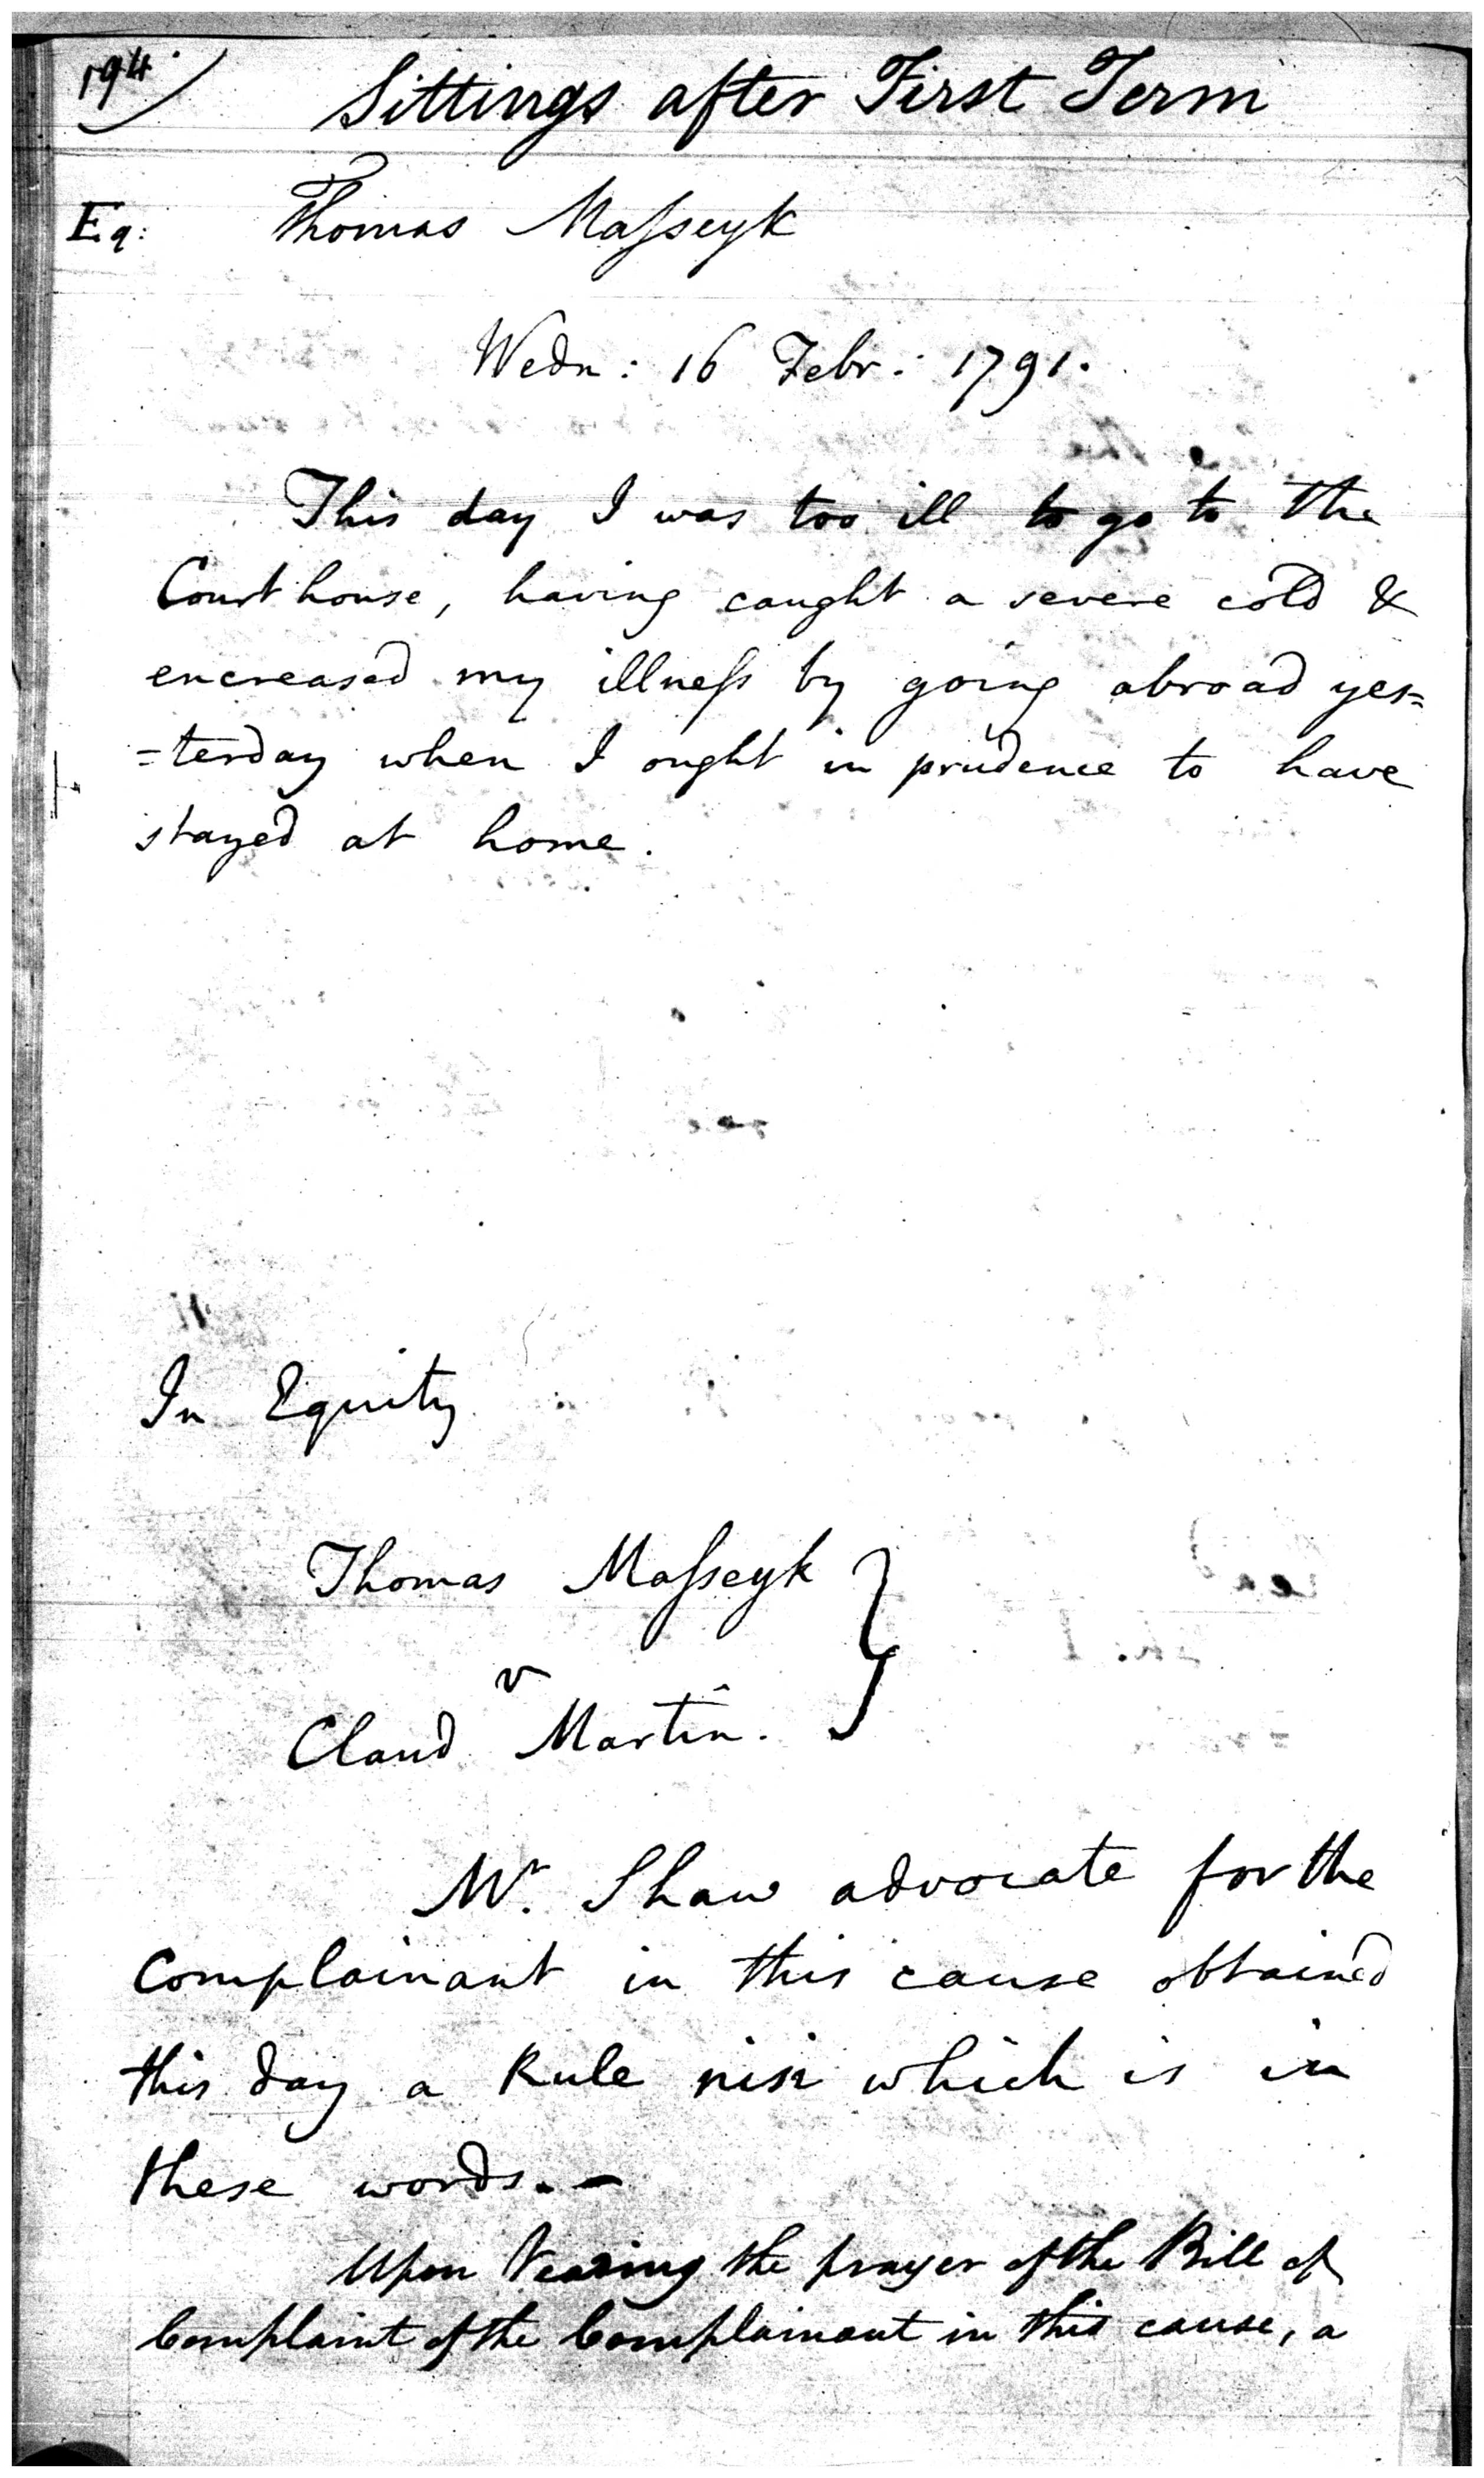 194
Sittings after First Term
Eq: Thomas Maſseyk
Wedn: 16 Febr: 1791.
This day I was too ill to go to the
Court house, having caught a severe cold &
encreased my illneſs by going abroad yes=
=terday when I ought in prudence to have
stayed at home.
In Equity
Thomas Maſseyk
v
Claud Martin.
Mr. Shaw advocate for the
Complainant in this cause obtained
this day a Rule nisi which is in
these words.-
Upon Reading the prayer of the Bill of
Complaint of the Complainant in this cause, a